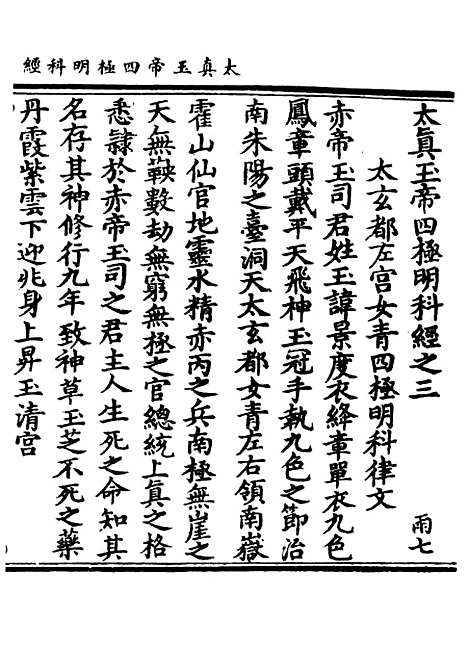 太真玉帝四極明科經
太眞玉帝四極明科經之三
雨七
太玄都左宮女青四極明科律文
赤帝玉司君姓玉諱景度衣絳章單衣九色
鳳章頭戴平天飛神玉冠手執九色之節治
南朱陽之臺洞天太玄都女青左右領南嶽
霍山仙官地靈水精赤丙之兵南極無崖之
天無鞅數劫無窮無極之官總統上眞之格
悉隸於赤帝玉司之君主人生死之命知其
名存其神修行九年致神草玉芝不死之藥
丹霞紫雲下迎兆身上昇玉清宮